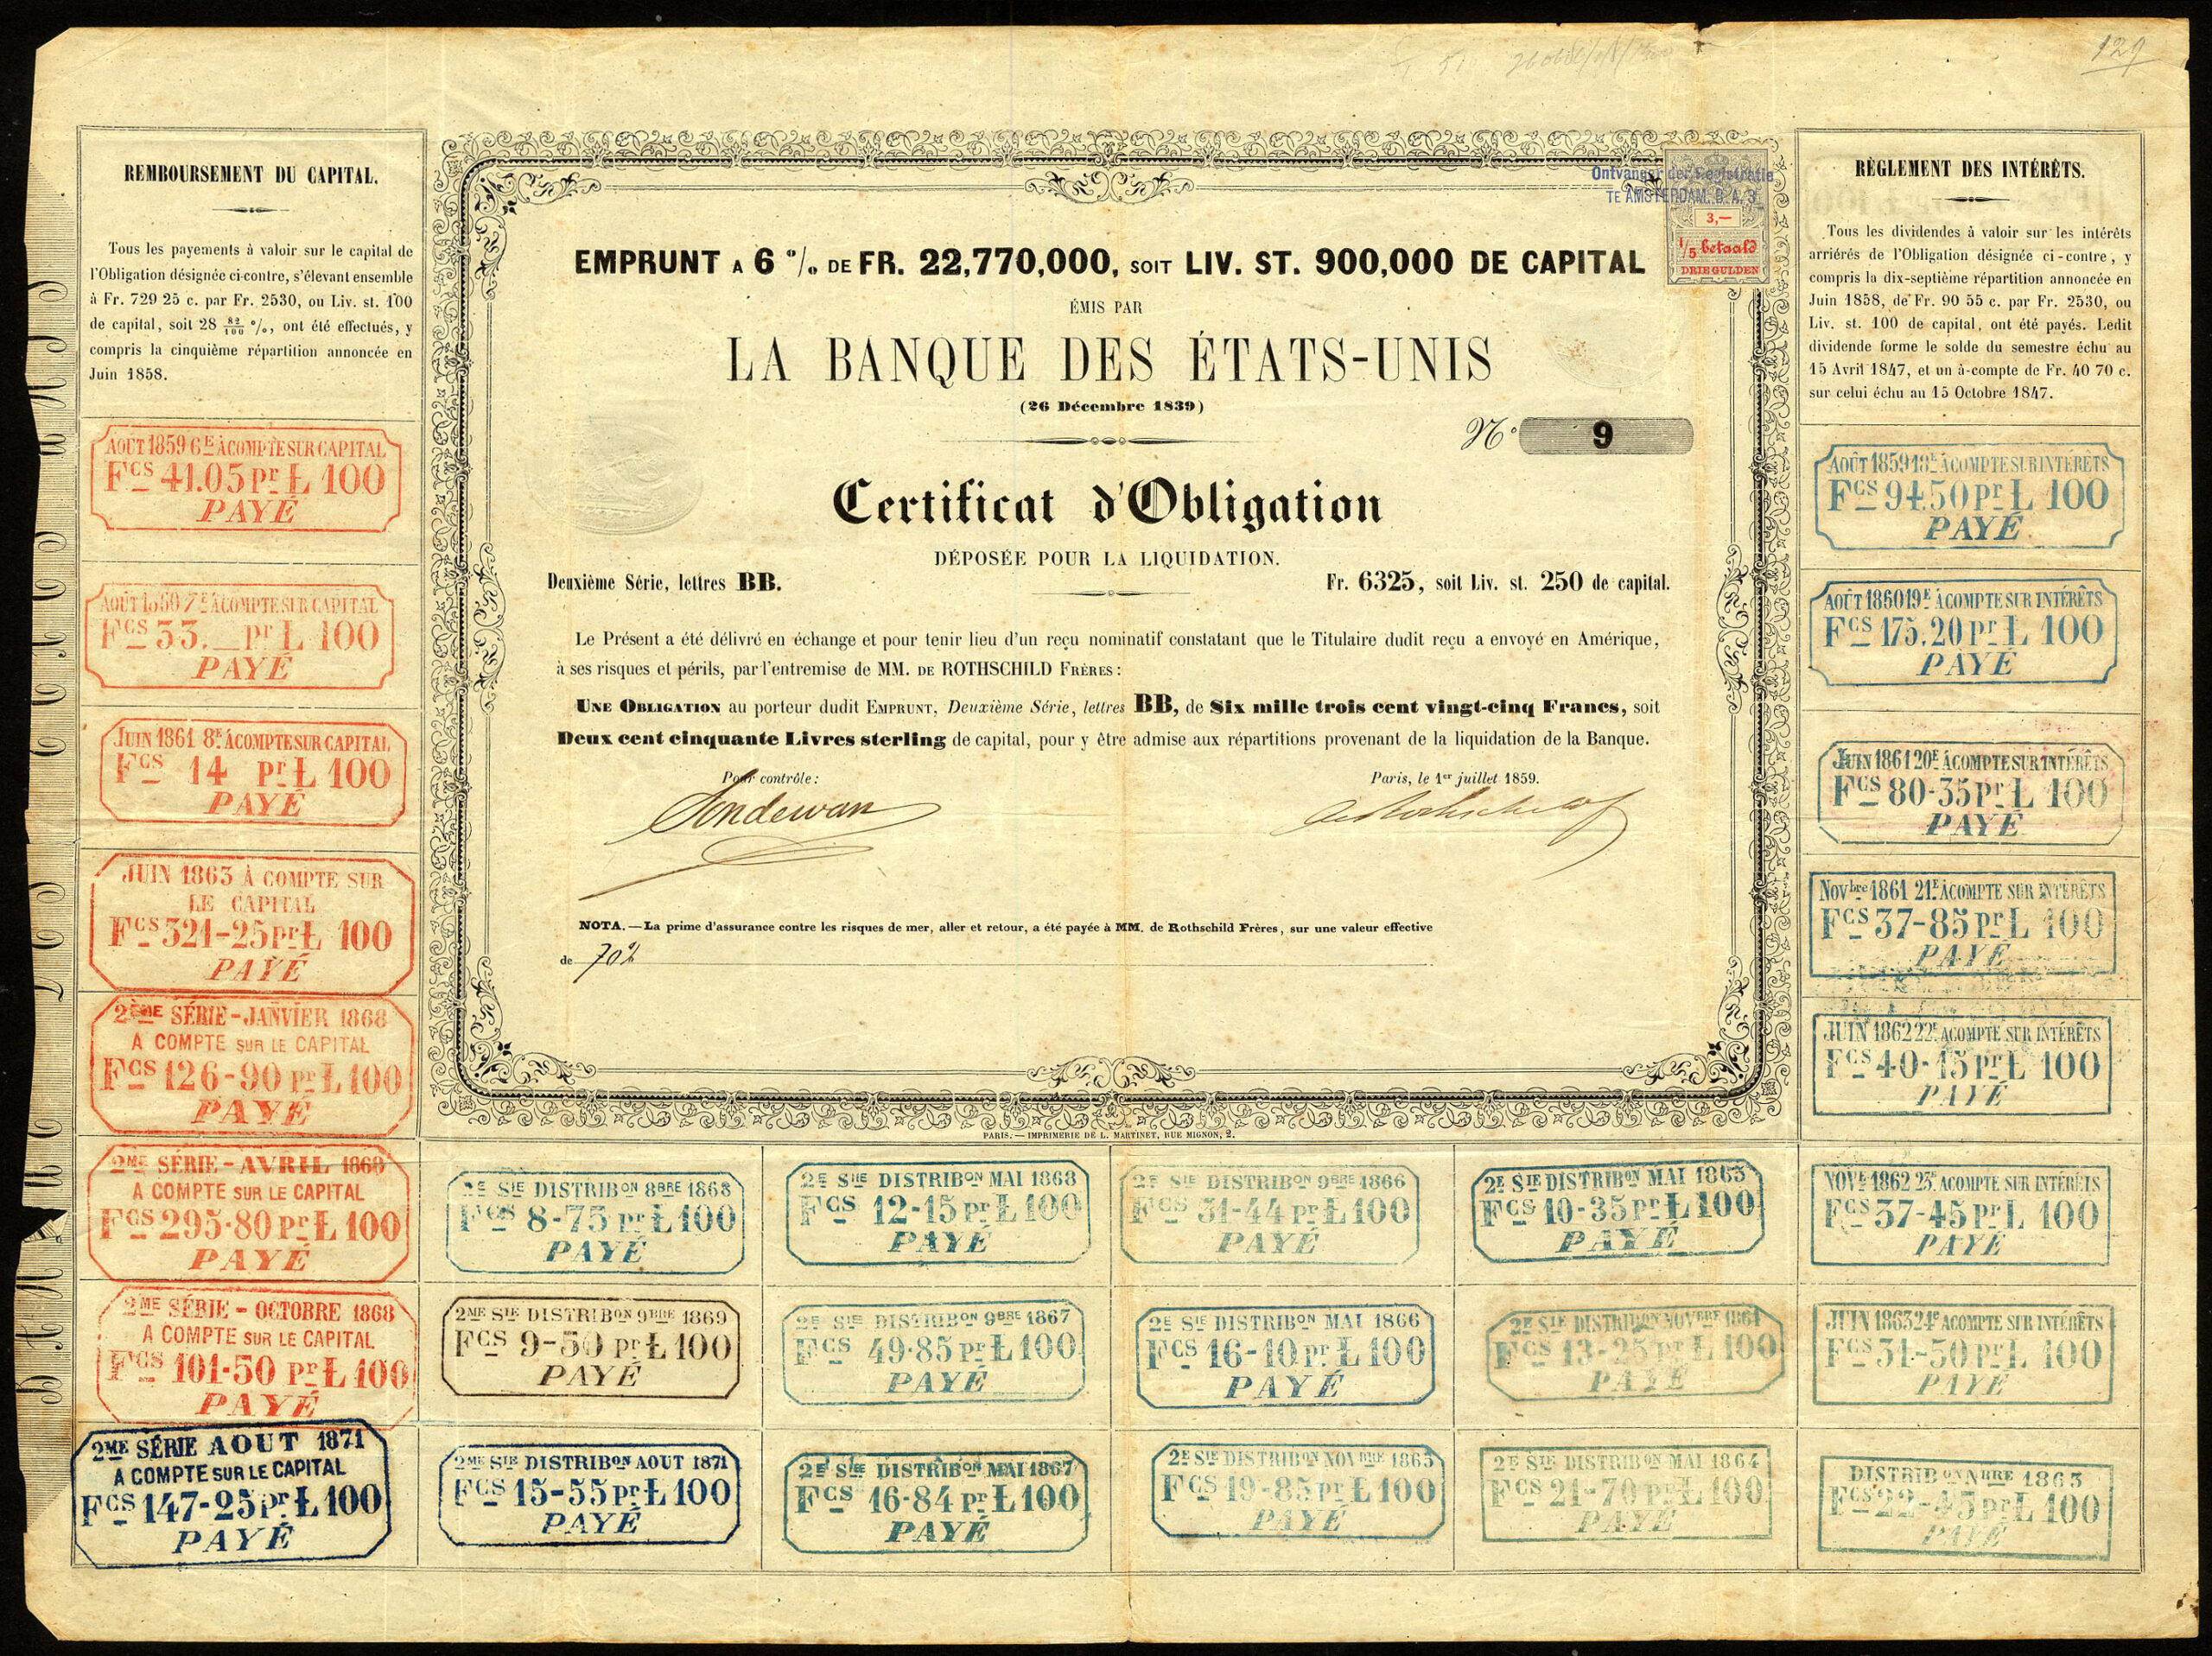 129
REMBOURSEMENT DU CAPITAL.
Tous les payements à valoir sur le capital de
l'Obligation désignée ci-contre, s'élevant ensemble
à Fr. 729 25 c. par Fr. 2530, ou Liv. st. 100
de capital, soit 28 82/100 %, ont été effectués, y
compris la cinquième répartition annoncée en
Juin 1858.
AOUT 1859 6E ÀCOMPTE SUR CAPITAL
FCS 41.05 Pr £ 100
PAYÉ
AOUT 1860 7E ÀCOMPTE SUR CAPITAL
FCS 33.__ Pr £ 100
PAYÉ
JUIN 1861 8E ÀCOMPTE SUR CAPITAL
FCS 14 Pr £ 100
PAYÉ
JUIN 1863 À COMPTE SUR
LE CAPITAL
FCS 321-25 Pr £ 100
PAYÉ
2ÈME SÉRIE - JANVIER 1868
A COMPTE SUR LE CAPITAL
FCS 126-90 Pr £ 100
PAYÉ
2ME SÉRIE - AVRIL 1868
A COMPTE SUR LE CAPITAL
FCS 295-80 Pr £ 100
PAYÉ
2ME SÉRIE - OCTOBRE 1868
A COMPTE SUR LE CAPITAL
FCS 101-50 Pr £ 100
PAYÉ
2ME SÉRIE AOUT 1871
A COMPTE SUR LE CAPITAL
FCS 147-25 Pr £ 100
PAYÉ
Ontvanger der Registratie
TE AMSTERDAM, B. A. 3
3,—
1/5 betaald
DRIE GULDEN
EMPRUNT A 6 % DE FR. 22,770,000, SOIT LIV. ST. 900,000 DE CAPITAL
ÉMIS PAR
LA BANQUE DES ÉTATS-UNIS
(26 Décembre 1839)
N° 9
Certificat d'Obligation
DÉPOSÉE POUR LA LIQUIDATION.
Deuxième Série, lettres BB.
Fr. 6325, soit Liv. st. 250 de capital.
Le Présent a été délivré en échange et pour tenir lieu d'un reçu nominatif constatant que le Titulaire dudit reçu a envoyé en Amérique,
à ses risques et périls, par l'entremise de MM. DE ROTHSCHILD FRÈRES :
UNE OBLIGATION au porteur dudit EMPRUNT, Deuxième Série, lettres BB, de Six mille trois cent vingt-cinq Francs, soit
Deux cent cinquante Livres sterling de capital, pour y être admise aux répartitions provenant de la liquidation de la Banque.
Pour contrôle :
Paris, le 1er juillet 1859.
de Rothschild
NOTA. — La prime d'assurance contre les risques de mer, aller et retour, a été payée à MM. de Rothschild Frères, sur une valeur effective
de 70%
PARIS. — IMPRIMERIE DE L. MARTINET, RUE MIGNON, 2.
RÈGLEMENT DES INTÉRÊTS.
Tous les dividendes à valoir sur les intérêts
arriérés de l'Obligation désignée ci-contre, y
compris la dix-septième répartition annoncée en
Juin 1858, de Fr. 90 55 c. par Fr. 2530, ou
Liv. st. 100 de capital, ont été payés. Ledit
dividende forme le solde du semestre échu au
15 Avril 1847, et un à-compte de Fr. 40 70 c.
sur celui échu au 15 Octobre 1847.
AOÛT 1859 18E ÀCOMPTE SUR INTÉRÊTS
FCS 94.50 Pr £ 100
PAYÉ
AOÛT 1860 19E ÀCOMPTE SUR INTÉRÊTS
FCS 175.20 Pr £ 100
PAYÉ
JUIN 1861 20E ÀCOMPTE SUR INTÉRÊTS
FCS 80-35 Pr £ 100
PAYÉ
Novbre 1861 21E ÀCOMPTE SUR INTÉRÊTS
FCS 37-85 Pr £ 100
PAYÉ
JUIN 1862 22E ACOMPTE SUR INTÉRÊTS
FCS 40-15 Pr £ 100
PAYÉ
NOVE 1862 23E ACOMPTE SUR INTÉRÊTS
FCS 37-45 Pr £ 100
PAYÉ
JUIN 1863 24E ACOMPTE SUR INTÉRÊTS
FCS 31-50 Pr £ 100
PAYÉ
DISTRIBON NBRE 1863
FCS 22-45 Pr £ 100
PAYÉ
2E SIE DISTRIBON 8BRE 1868
FCS 8-75 Pr £ 100
PAYÉ
2E SIE DISTRIBON MAI 1868
FCS 12-15 Pr £ 100
PAYÉ
2E SIE DISTRIBON 9BRE 1866
FCS 31-44 Pr £ 100
PAYÉ
2E SIE DISTRIBON MAI 1865
FCS 10-35 Pr £ 100
PAYÉ
2ME SIE DISTRIBON 9BRE 1869
FCS 9-50 Pr £ 100
PAYÉ
2E SIE DISTRIBON 9BRE 1867
FCS 49-85 Pr £ 100
PAYÉ
2E SIE DISTRIBON MAI 1866
FCS 16-10 Pr £ 100
PAYÉ
2E SIE DISTRIBON NOVBRE 1864
FCS 13-25 Pr £ 100
PAYÉ
2ME SIE DISTRIBON AOUT 1871
FCS 15-55 Pr £ 100
PAYÉ
2E SIE DISTRIBON MAI 1867
FCS 16-84 Pr £ 100
PAYÉ
2E SIE DISTRIBON NOVBRE 1865
FCS 19-85 Pr £ 100
PAYÉ
2E SIE DISTRIBON MAI 1864
FCS 21-70 Pr £ 100
PAYÉ